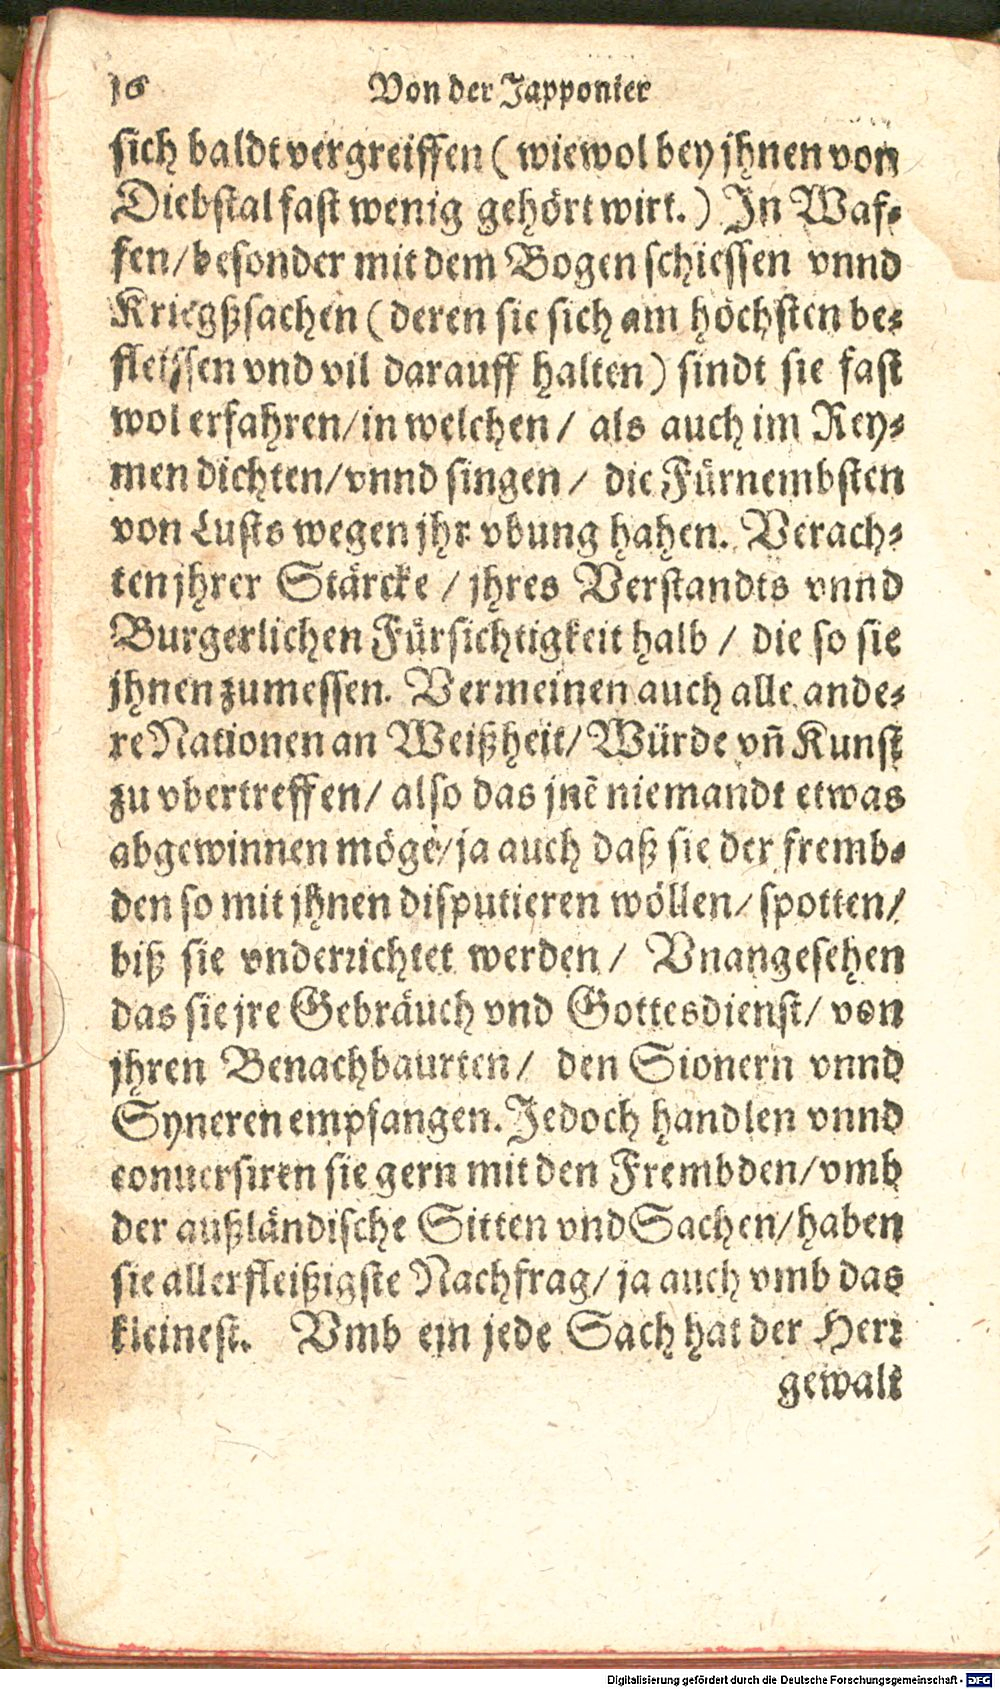 16 Von der Japponier
sich baldt vergreiffen ( wiewol bey jhnen von
Diebstal fast wenig gehört wirt. ) In Waf-
fen/ besonder mit dem Bogen schiessen vnnd
Kriegßsachen ( deren sie sich am höchsten be-
fleissen vnd vil darauff halten ) sindt sie fast
wol erfahren/ in welchen / als auch im Rey-
men dichten/ vnnd singen / die Fürnembsten
von Lusts wegen jhr vbung hahen. Verach-
ten jhrer Stärcke / jhres Verstandts vnnd
Burgerlichen Fürsichtigkeit halb / die so sie
jhnen zumessen. Vermeinen auch alle ande-
re Nationen an Weißheit/ Würde vñ Kunst
zu vbertreffen/ also das jnẽ niemandt etwas
abgewinnen möge/ ja auch daß sie der fremb-
den so mit jhnen disputieren wöllen/ spotten/
biß sie vnderrichtet werden / Vnangesehen
das sie jre Gebräuch vnd Gottesdienst/ von
jhren Benachbaurten / den Sionern vnnd
Syneren empfangen. Jedoch handlen vnnd
conuersiren sie gern mit den Frembden/ vmb
der außländische Sitten vnd Sachen/ haben
sie allerfleißigste Nachfrag/ ja auch vmb das
kleinest. Vmb ein jede Sach hat der Herr
gewalt
Digitalisierung gefördert durch die Deutsche Forschungsgemeinschaft - DFG